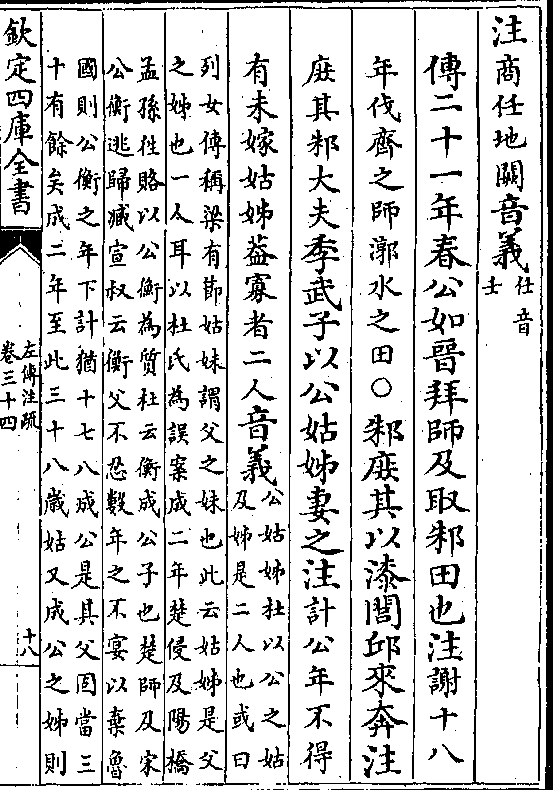 注商任地闕音義任音
士
傳二十一年春公如晉拜師及取邾田也注謝十八
年伐齊之師漷水之田○邾庻其以漆閭邱來奔注
庻其邾大夫季武子以公姑姊妻之注計公年不得
有未嫁姑姊葢寡者二人音義公姑姊杜以公之姑
及姊是二人也或曰
列女傳稱梁有節姑妹謂父之妹也此云姑姊是父
之姊也一人耳以杜氏為誤案成二年楚侵及陽橋
孟孫徃賂以公衡為質杜云衡成公子也楚師及宋
公衡逃歸臧宣叔云衡父不忍數年之不宴以棄魯
國則公衡之年下計猶十七八成公是其父固當三
十有餘矣成二年至此三十八歲姑又成公之姊則
欽定四庫全書
左傳注疏
卷三十四
十八